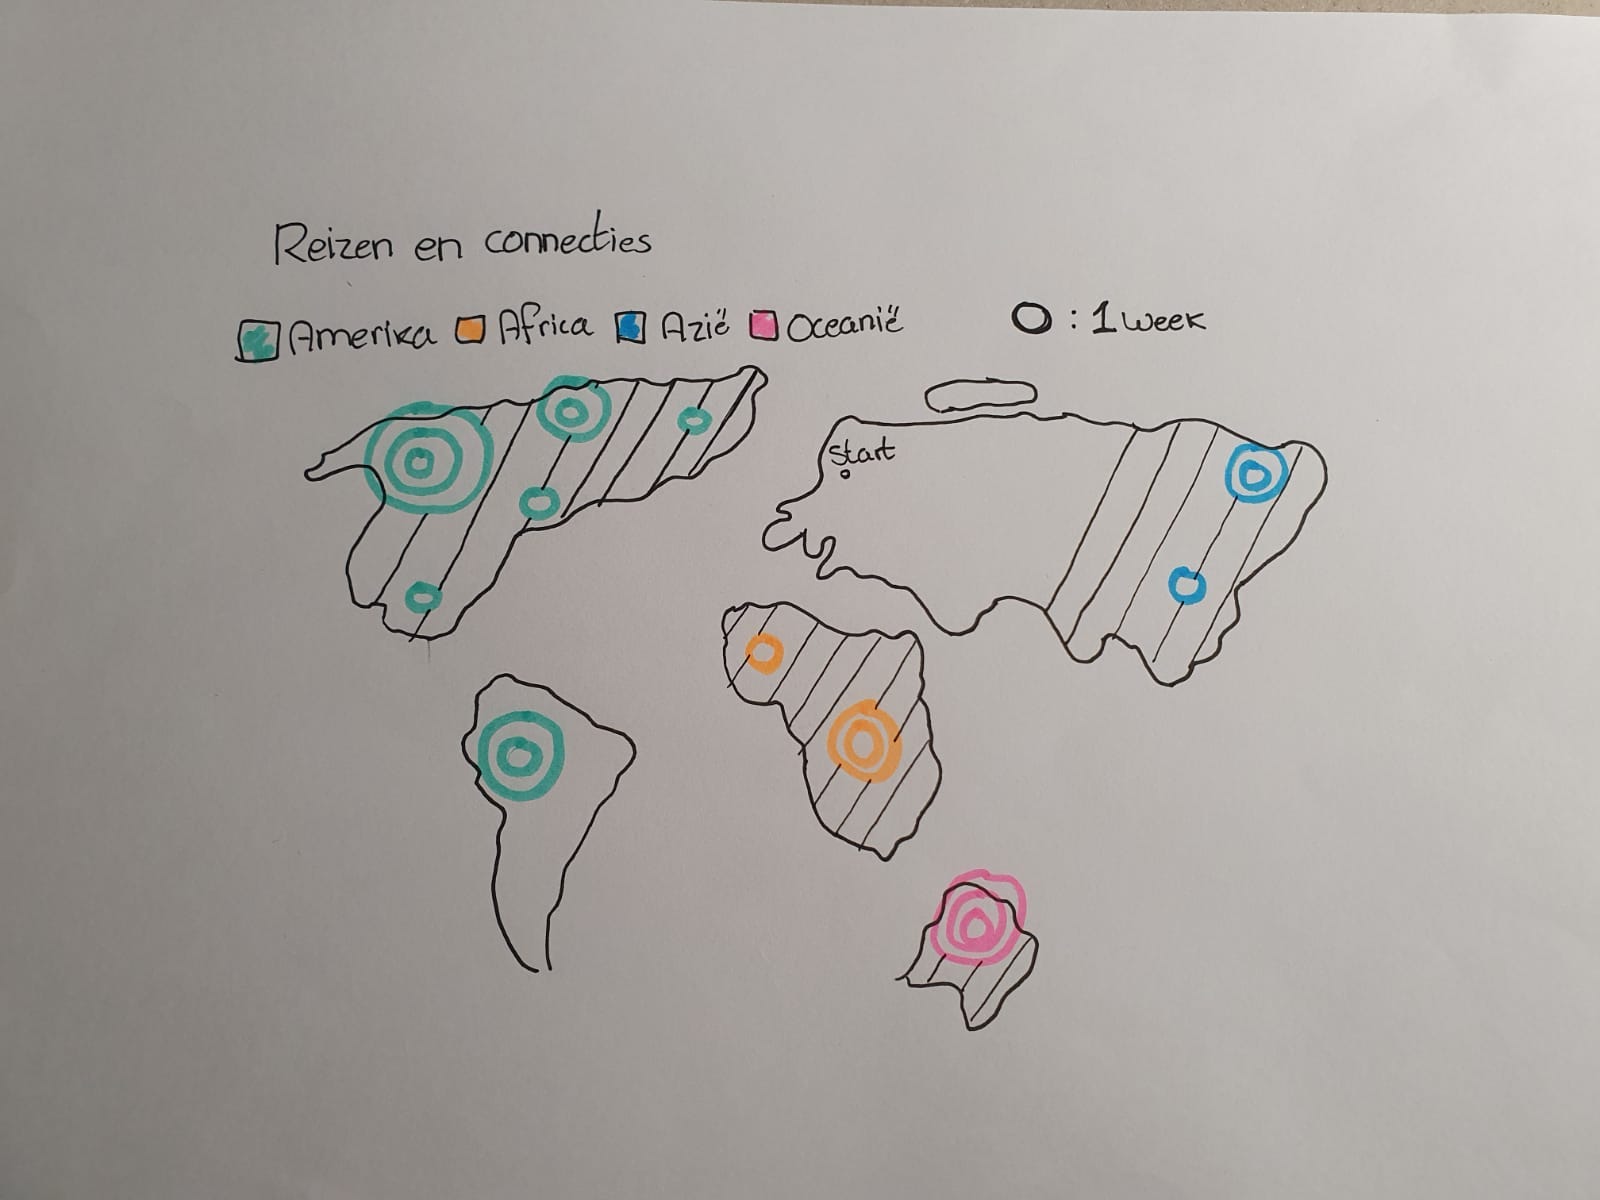 Reizen en connecties
Amerika Africa Azië Oceanië
O : 1 week
start